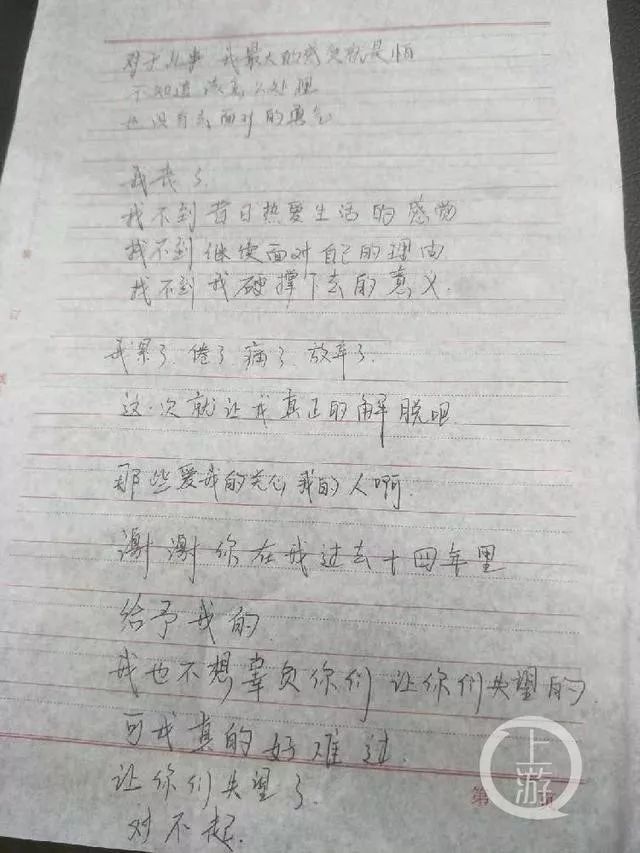 对于此事 我最大的感受就是怕
不知道该怎么处理
也没有去面对的勇气
我丧了
找不到昔日热爱生活的感觉
找不到继续面对自己的理由
找不到我硬撑下去的意义.
我累了.倦了.痛了.放弃了.
这次就让我真正的解脱吧
那些爱我的关心我的人啊.
谢谢你在我过去十四年里
给予我的.
我也不想辜负你们 让你们失望的
可我真的好难过.
让你们失望了.
对不起.
第 页
上游